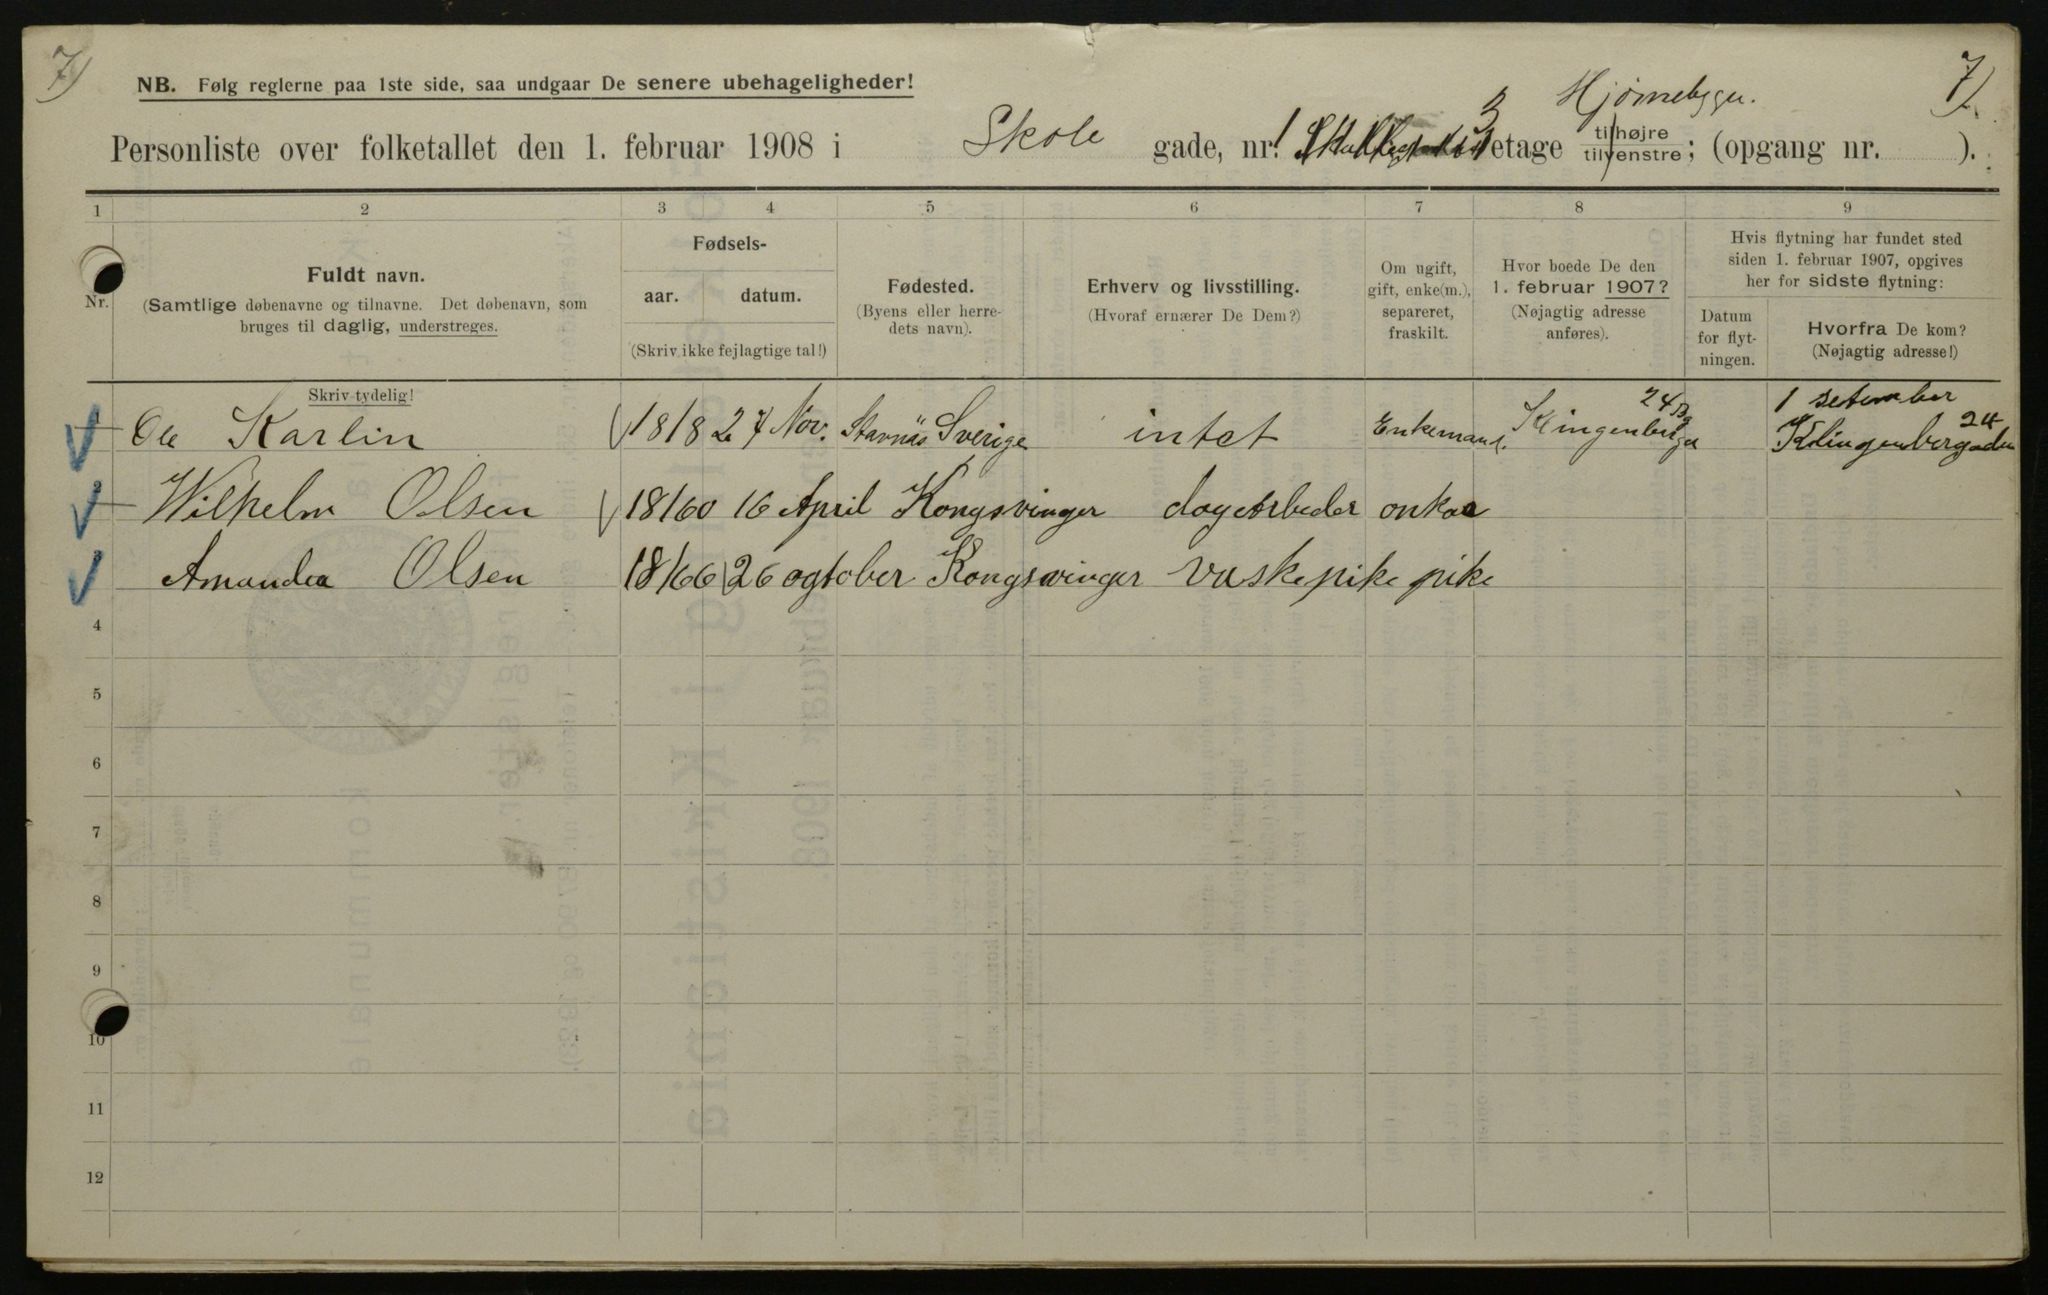 7)
NB. Følg reglerne paa 1ste side, saa undgaar De senere ubehageligheder!
Hjørnebygn. 7)
Personliste over folketallet den 1. februar 1908 i Skole gade, nr. 1 3 etage til højre / til venstre; (opgang nr. ).
1 2 3 4 5 6 7 8 9
Nr.
Fuldt navn.
(Samtlige døbenavne og tilnavne. Det døbenavn, som
bruges til daglig, understreges.
Skriv tydelig!
Fødsels-
aar. datum.
(Skriv ikke fejlagtige tal!)
Fødested.
(Byens eller herre-
dets navn).
Erhverv og livsstilling.
(Hvoraf ernærer De Dem?)
Om ugift,
gift, enke(m.),
separeret,
fraskilt.
Hvor boede De den
1. februar 1907?
(Nøjagtig adresse
anføres).
Hvis flytning har fundet sted
siden 1. februar 1907, opgives
her for sidste flytning:
Datum
for flyt-
ningen.
Hvorfra De kom?
(Nøjagtig adresse!)
1 Ole Karlin 1818 27 Nov. Stavnäs Sverige intet Enkemand. Klingenbergg 24 1 setember Klingenbergaden 24
2 Wilhelm Olsen 1860 16 April Kongsvinger dagarbeder
3 Amanda Olsen 1866 26 ogtober Kongsvinger vaskepike pike
4
5
6
7
8
9
10
11
12